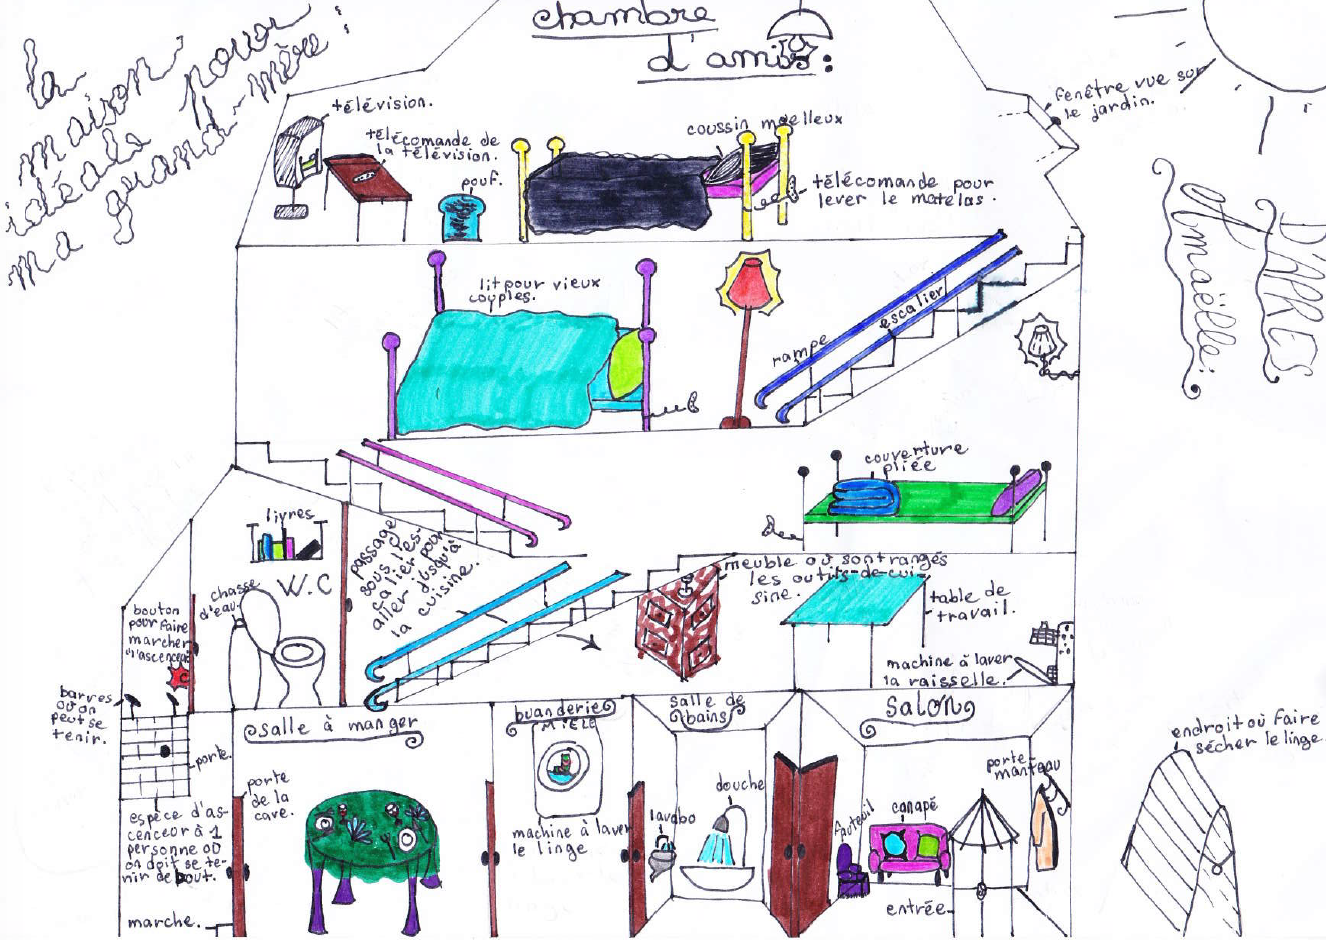 la
maison
idéale pour
ma grand-mère :
chambre
d'amis :
télévision.
télécomande de
la télévision.
pouf.
coussin moelleux
télécomande pour
lever le matelas.
fenêtre vue sur
le jardin.
D'APRES
Amaëlle.
lit pour vieux
couples.
rampe
escalier
couverture
pliée
livres
W.C
chasse
d'eau
passage
sous l'es-
calier pour
aller jusqu'à
la cuisine.
bouton
pour faire
marcher
l'ascenceur
meuble où sont rangés
les outils-de-cui-
sine.
table de
travail.
machine à laver
la vaisselle.
barres
où on
peut se
tenir.
porte.
espèce d'as-
cenceor à 1
personne où
on doit se te-
nir debout.
marche.
salle à manger
porte
de la
cave.
buanderie
MIELE
machine à laver
le linge
salle de
bains
lavabo
douche
Salon
porte-
manteau
fauteuil
canapé
entrée
endroit où faire
sécher le linge.